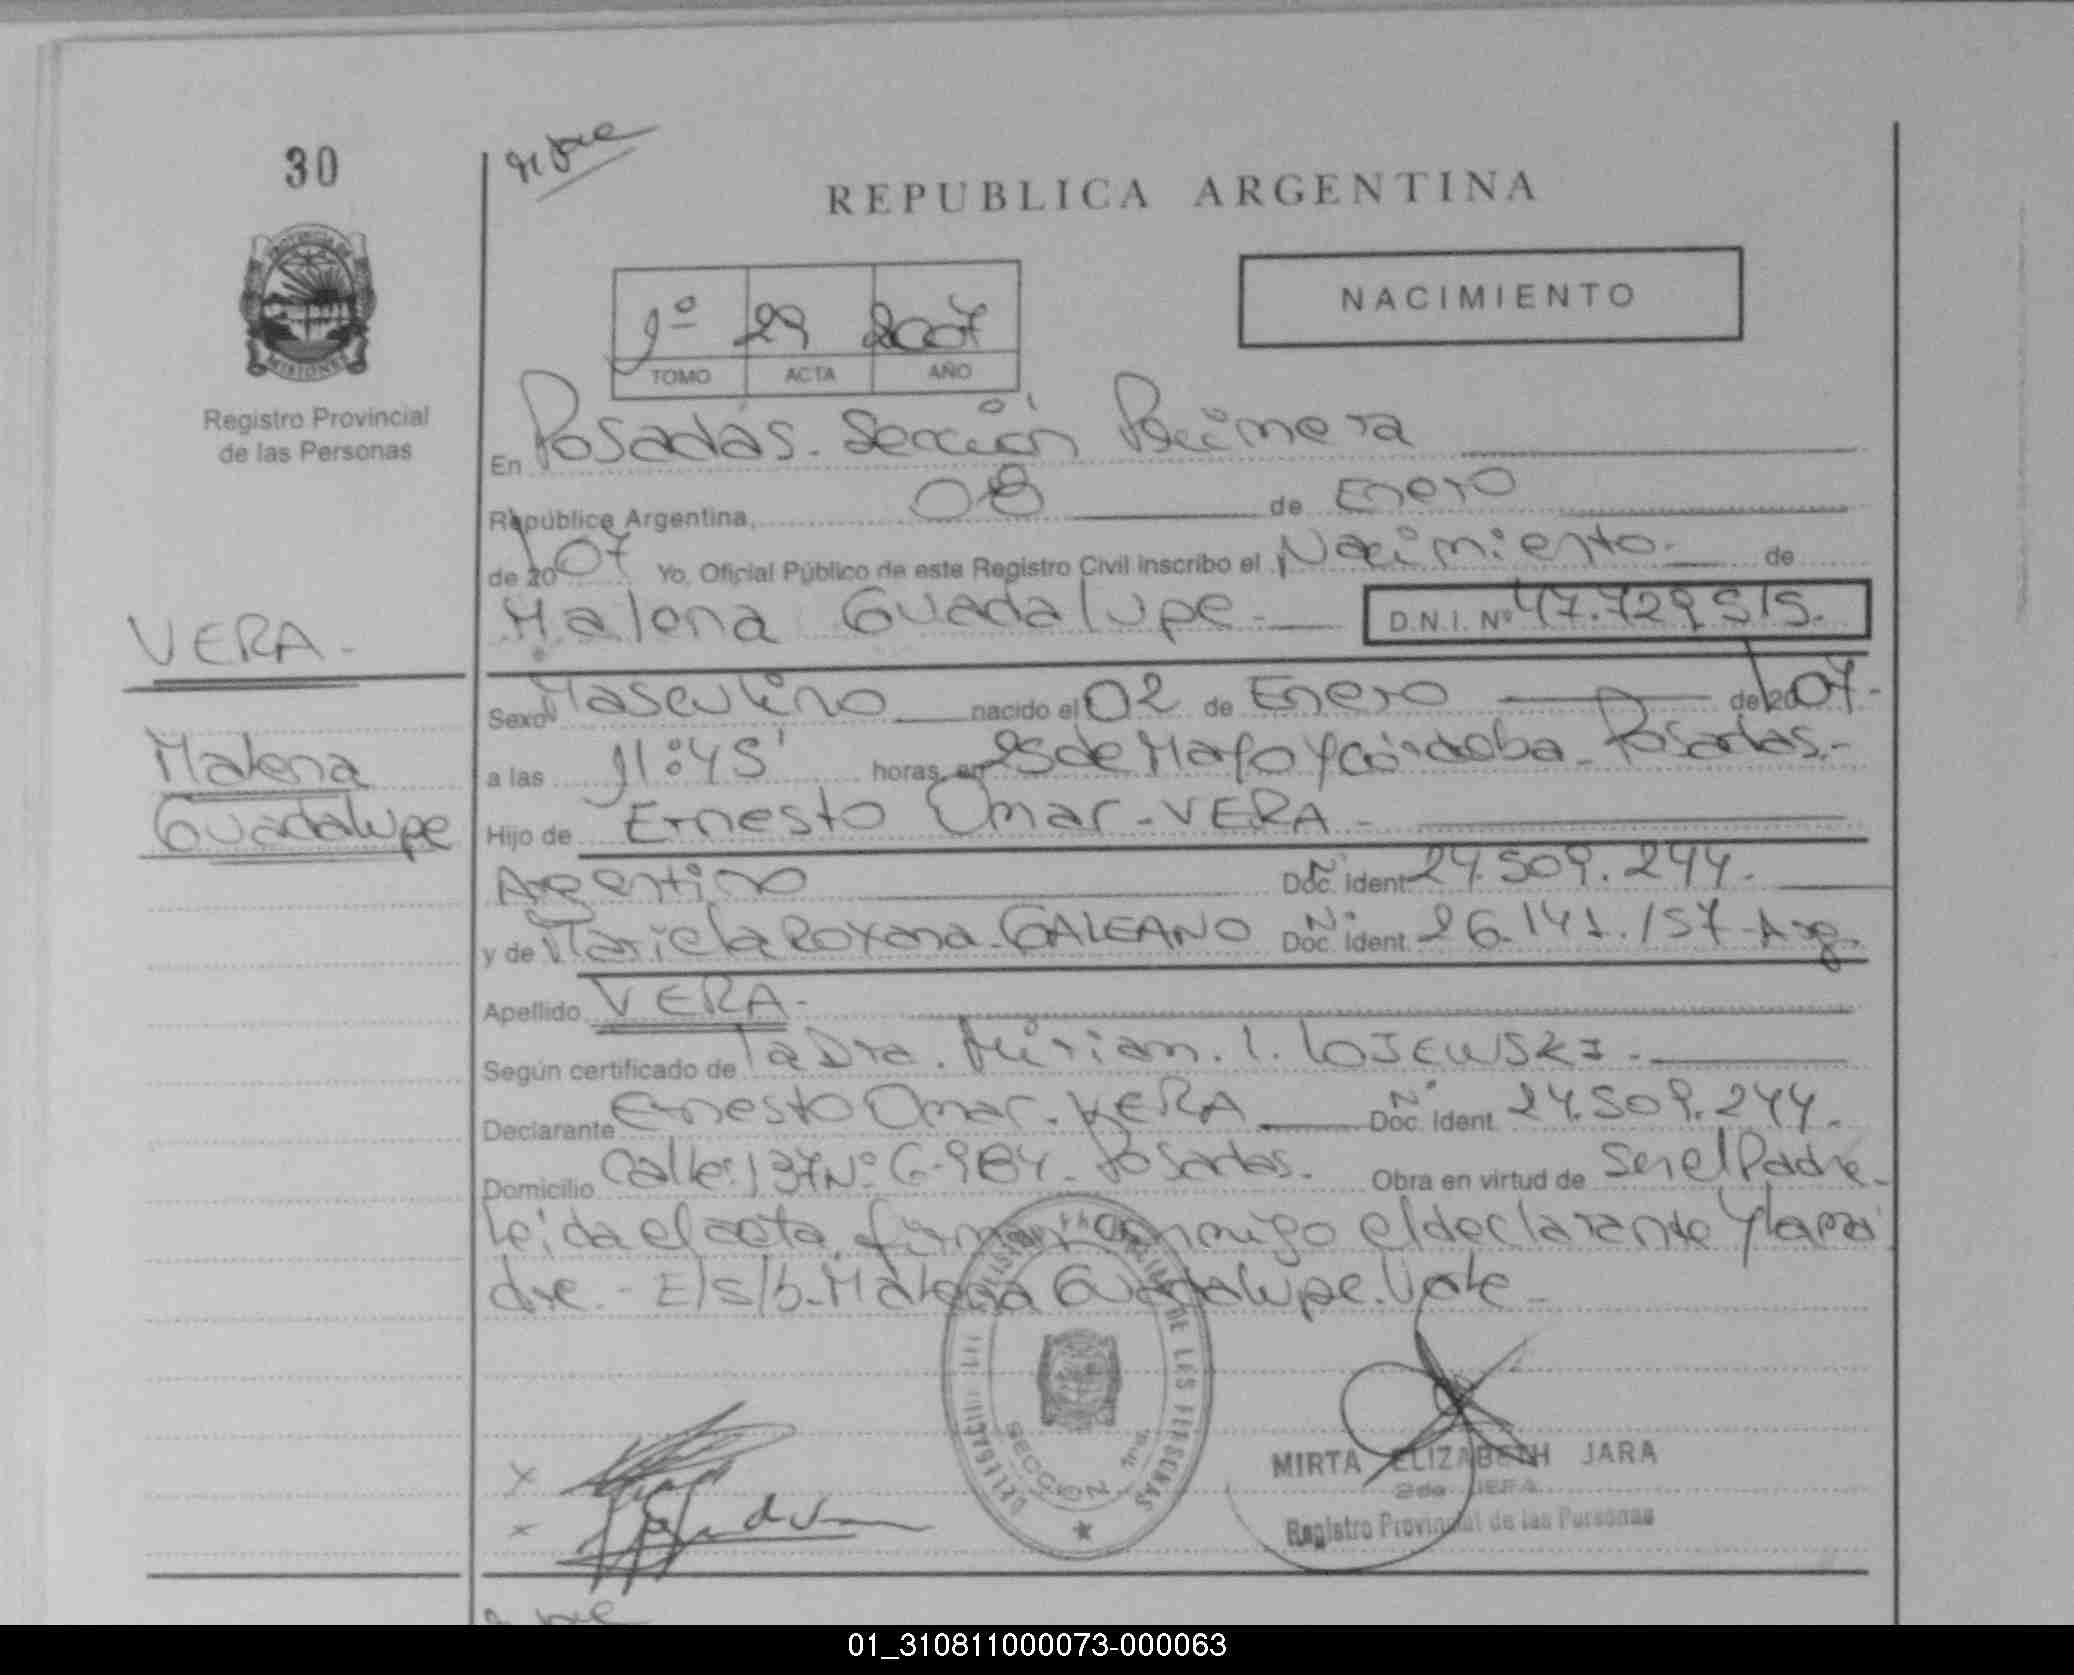 30
REPUBLICA ARGENTINA
PROVINCIA DE
MISIONES
Registro Provincial
de las Personas
1º 29 2007
TOMO ACTA AÑO
NACIMIENTO
En Posadas. Sección Primera
República Argentina, 08 de Enero
de 2007 Yo, Oficial Público de este Registro Civil inscribo el Nacimiento. de
Malena Guadalupe. D.N.I. Nº 47.729.515.
VERA-
Malena
Guadalupe
Sexo Masculino nacido el 02 de Enero de 2007.-
a las 11:45' horas, en 25 de Mayo y Córdoba - Posadas.-
Hijo de Ernesto Omar - VERA -
Argentino Nº Doc. Ident 24.509.244.
y de Mariela Roxana - GALEANO Nº Doc. Ident. 26.141.157 - Arg.
Apellido VERA-
Según certificado de la Dra. Mirian. I. LOJEWSKI.
Declarante Ernesto Omar. VERA Nº Doc. Ident. 24.509.244.
Domicilio Calle: 137 Nº: 6.984 - Posadas. Obra en virtud de Ser el Padre -
Leida el acta, firman conmigo el declarante y la ma
dre.- E/S/b. Malena Guadalupe. Vale -
DE LAS PERSONAS
SECCION 1ra.
MIRTA ELIZABETH JARA
2da JEFA
Registro Provincial de las Personas
01_310811000073-000063